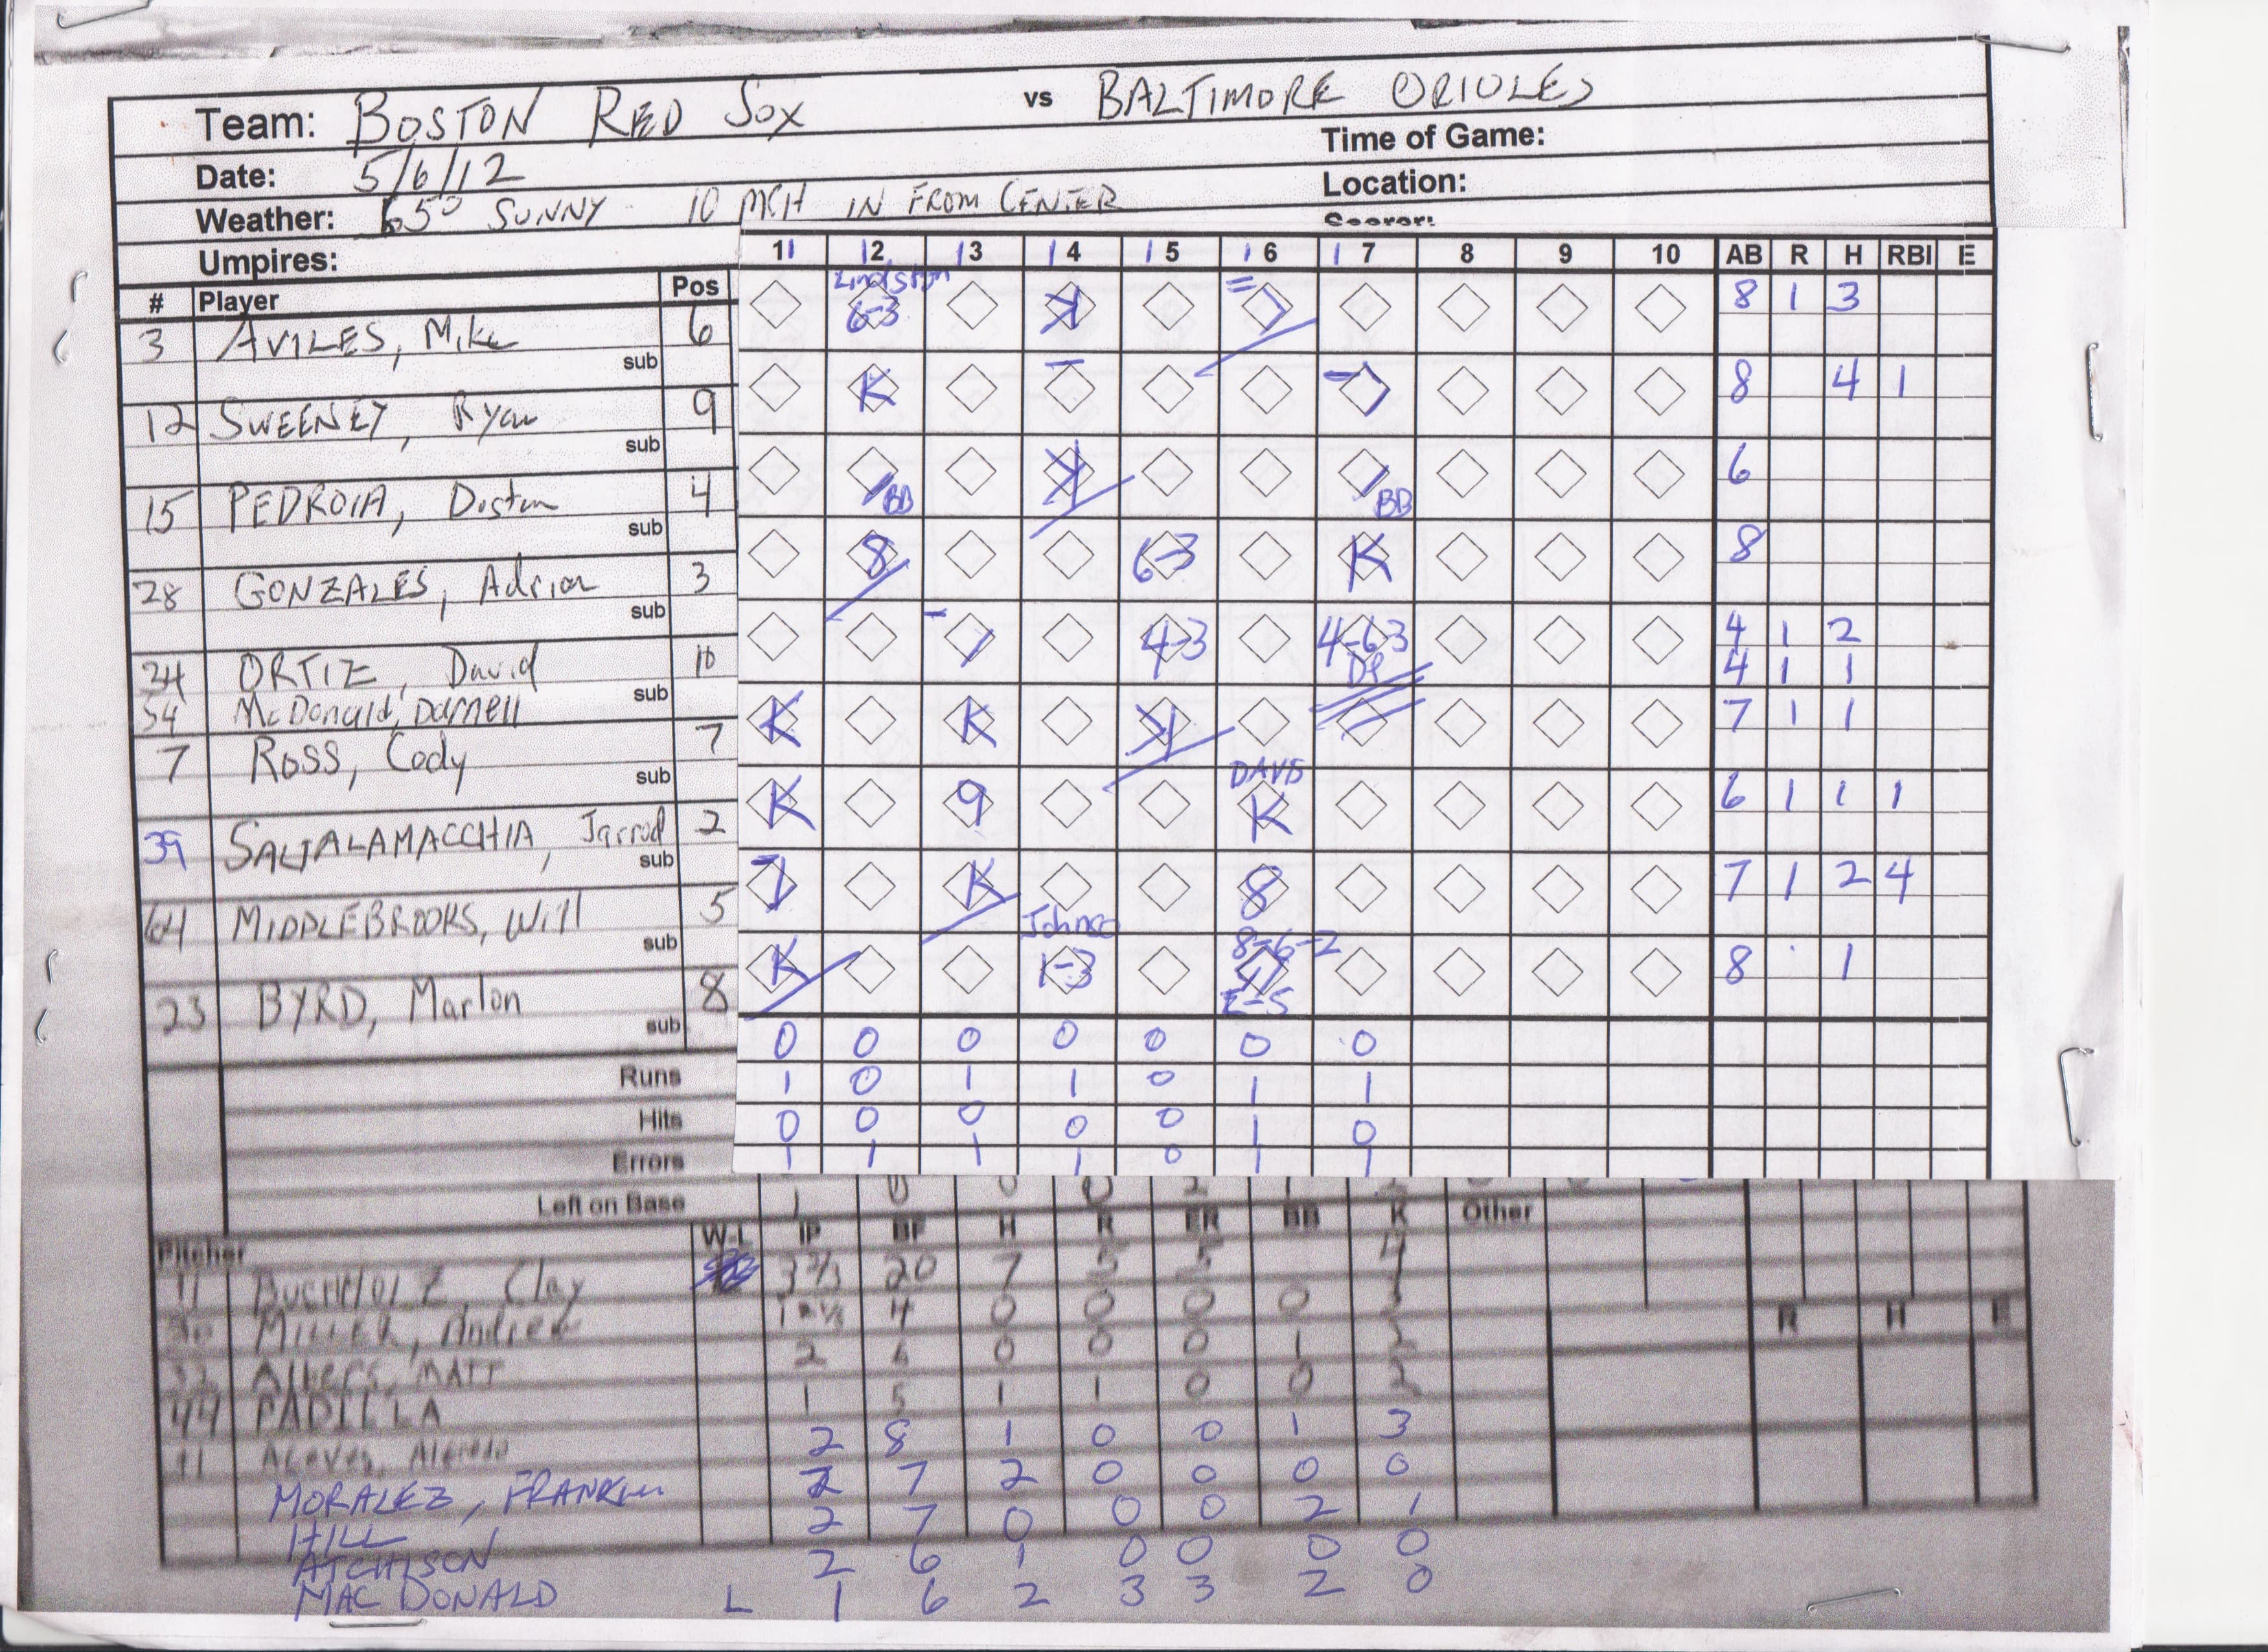 Team: BOSTON RED SOX vs BALTIMORE ORIOLES
Time of Game:
Date: 5/6/12
Location:
Weather: 65° SUNNY 10 MPH IN FROM CENTER
Scorer:
Umpires:
# Player Pos 11 12 13 14 15 16 17 8 9 10 AB R H RBI E
3 AVILES, Mike 6 6-3 K = 8 1 3
sub
12 SWEENEY, Ryan 9 K - - 8 4 1
sub
15 PEDROIA, Dustin 4 BB K BB 6
sub
28 GONZALES, Adrian 3 8 6-3 K 8
sub
34 ORTIZ, David 10 - 4-3 4-63 DP 4 1 2
54 McDonald, Darnell sub 4 1 1
7 ROSS, Cody 7 K K K 7 1 1
sub
39 SALTALAMACCHIA, Jarrod 2 K 9 DAVIS K 6 1 1 1
sub
64 MIDDLEBROOKS, Will 5 - K 8 7 1 2 4
sub
23 BYRD, Marlon 8 K 1-3 8-6-2 E-5 8 1
sub
0 0 0 0 0 0 0
Runs 1 0 1 1 0 1 1
Hits 0 0 0 0 0 1 0
Errors 1 1 1 1 0 1 1
Left on Base
Pitcher W-L IP BF H R ER BB K Other
11 BUCHHOLZ, Clay 3 2/3 20 7 5 5 4
30 MILLER, Andrew 4 0 0 0 0
32 Albers, MATT 2 6 0 0 0 1 2
R H E
44 PADILLA 1 5 1 1 0 0 2
91 Aceves, Alfredo 2 8 1 0 0 1 3
MORALEZ, FRANKLIN 2 7 2 0 0 0 0
HILL 2 7 0 0 0 2 1
ATCHISON 2 6 1 0 0 0 0
MAC DONALD L 1 6 2 3 3 2 0